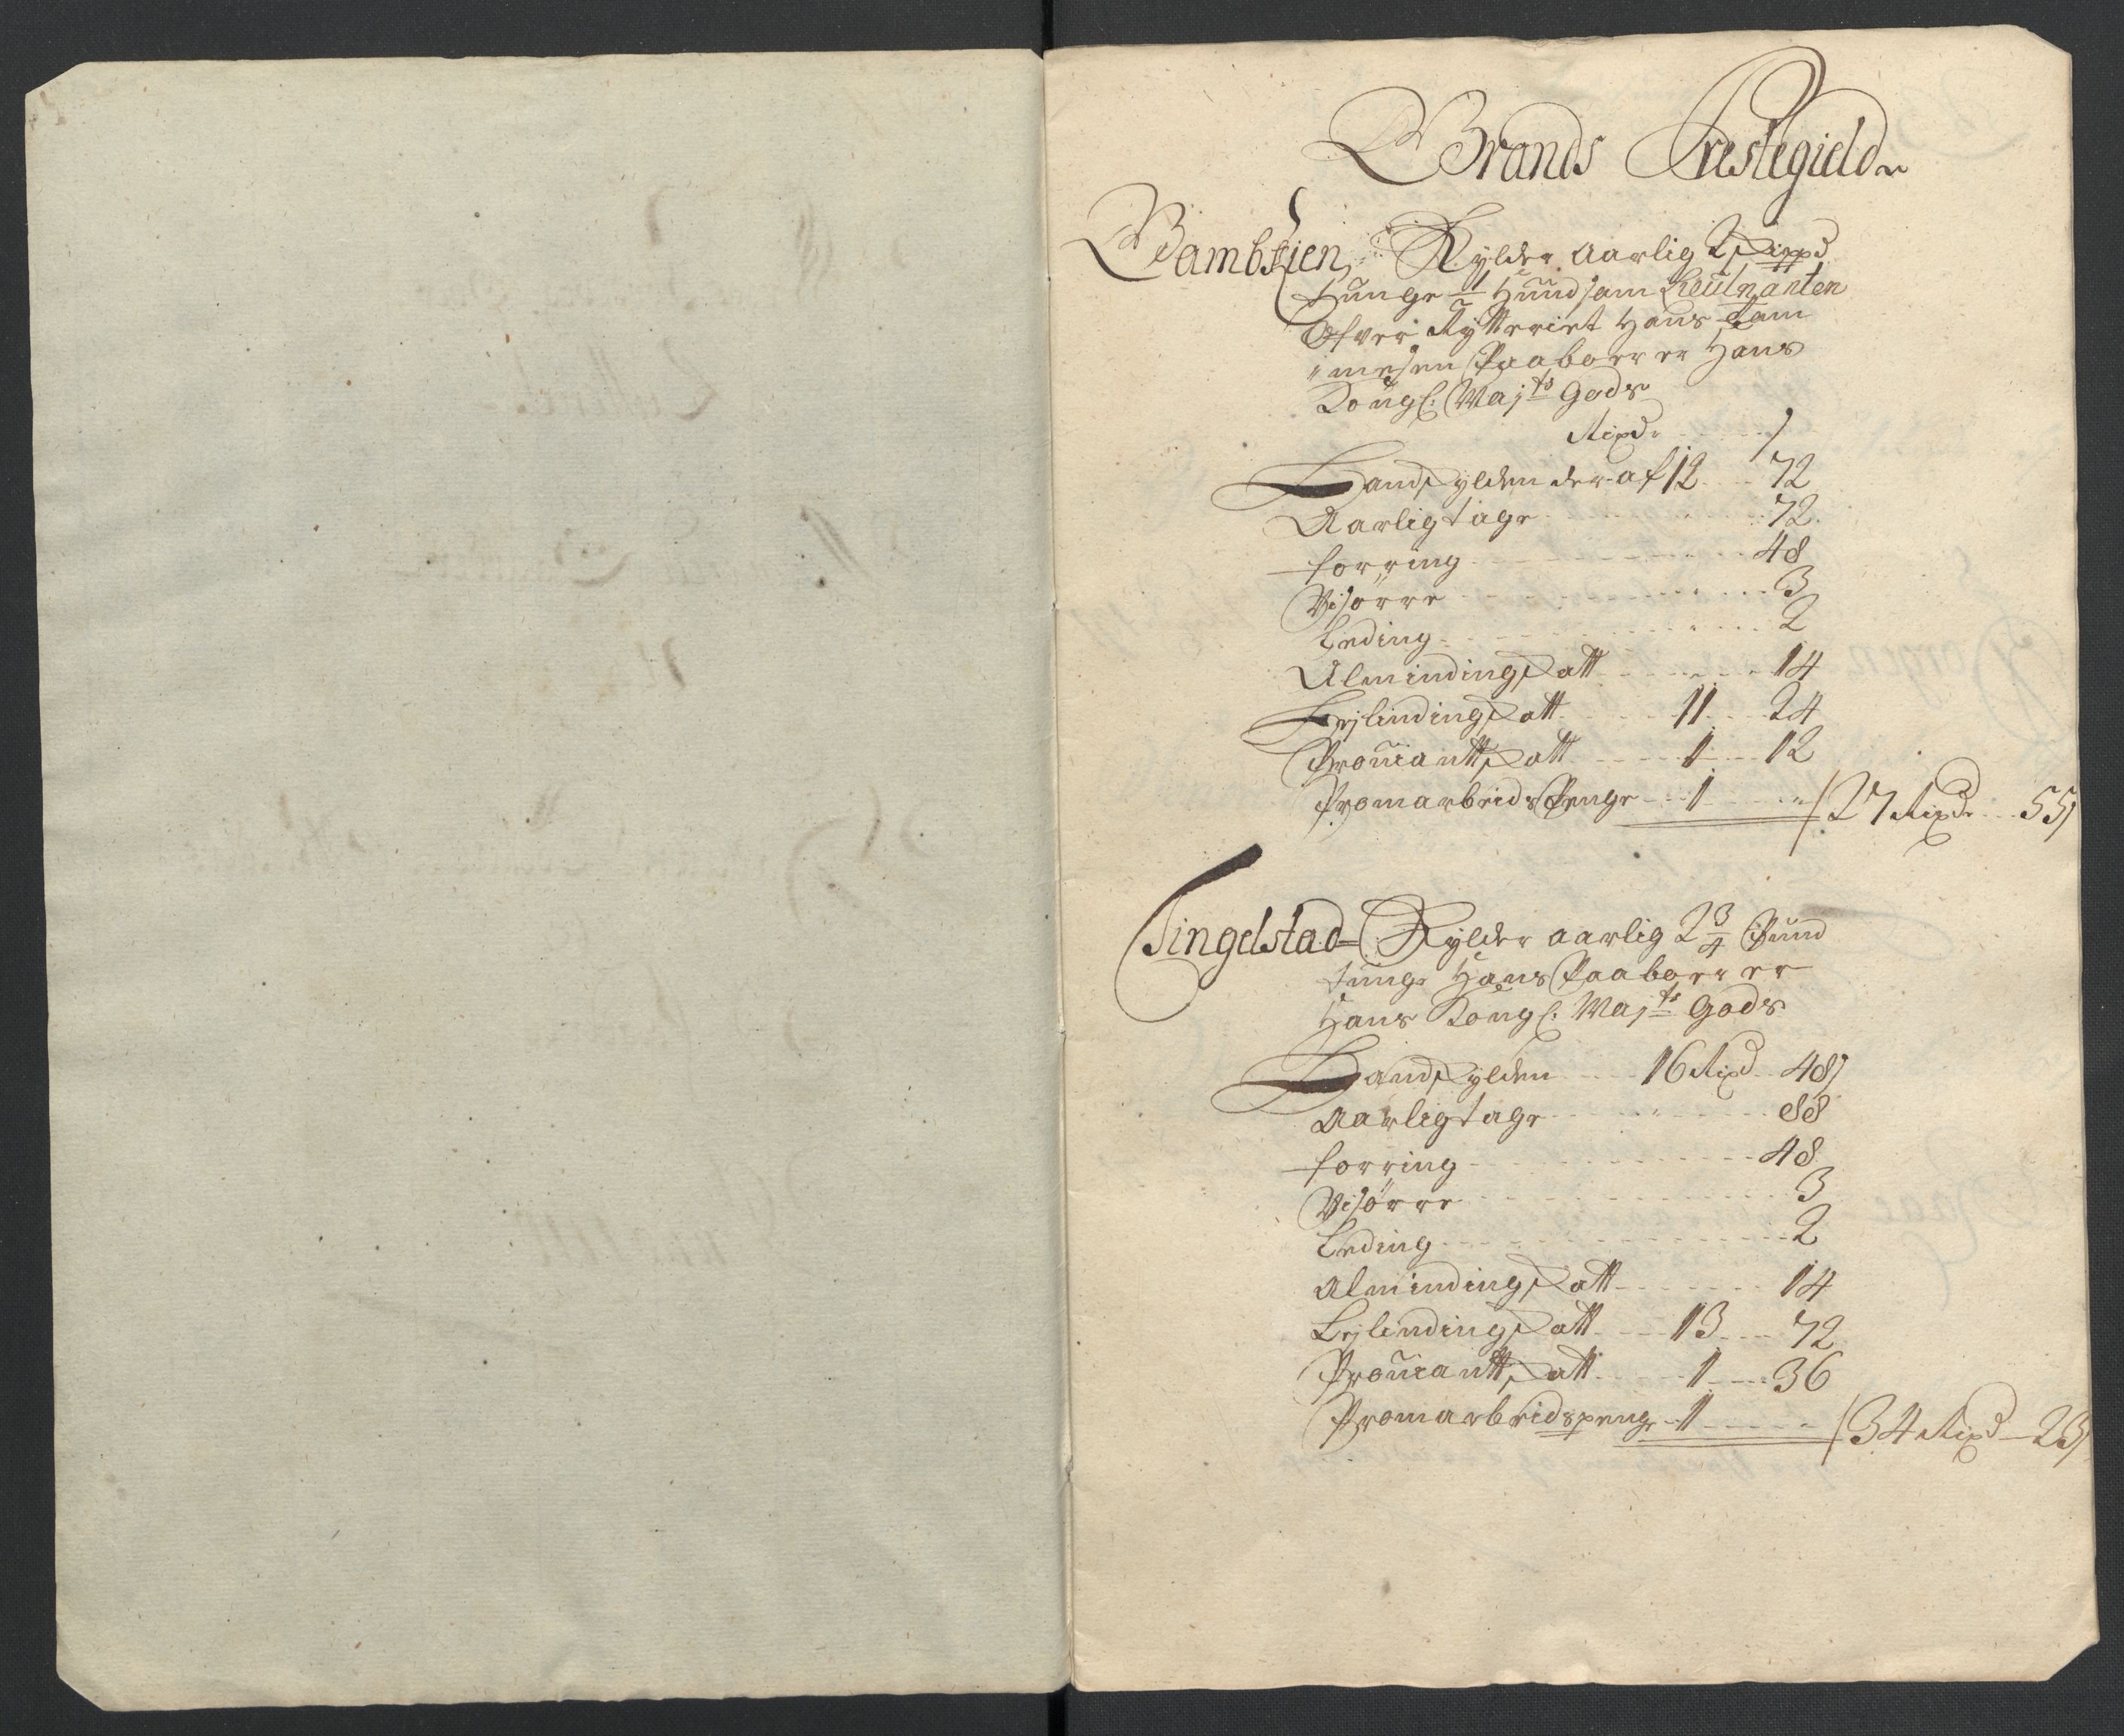 Brands Prestegield
Gambsien, Skylder Aarlig 2 Skippd
tunge 1 Hund som Leutnanten
Ofver Rytteriet Hans Tam
mesen Paaboer er Hans
Kongl: Maj:ts Gods
Rixdr
Landskylden der af 12 72
Aarligtage 72
Forring 48
Visørre 3
Leding 2
Almindings Skatt 14
Lejlendings Skatt 11 24
Proviantt Skatt 1 12
Promarbeids Penge 1 27 Rixdr 55
Tingelstad Skylder aarlig 2 3/4 Pund
tunge Hans Paaboer er
Hans Kongl: Maj:ts Gods
Landskylden 16 Rixd 48
Aarligtage 88
Forring 48
Visørre 3
Leding 2
Almindings Skatt 14
Lejlendings Skatt 13 72
Proviantt Skatt 1 36
Promarbeidspenge 1 34 Rixd 23